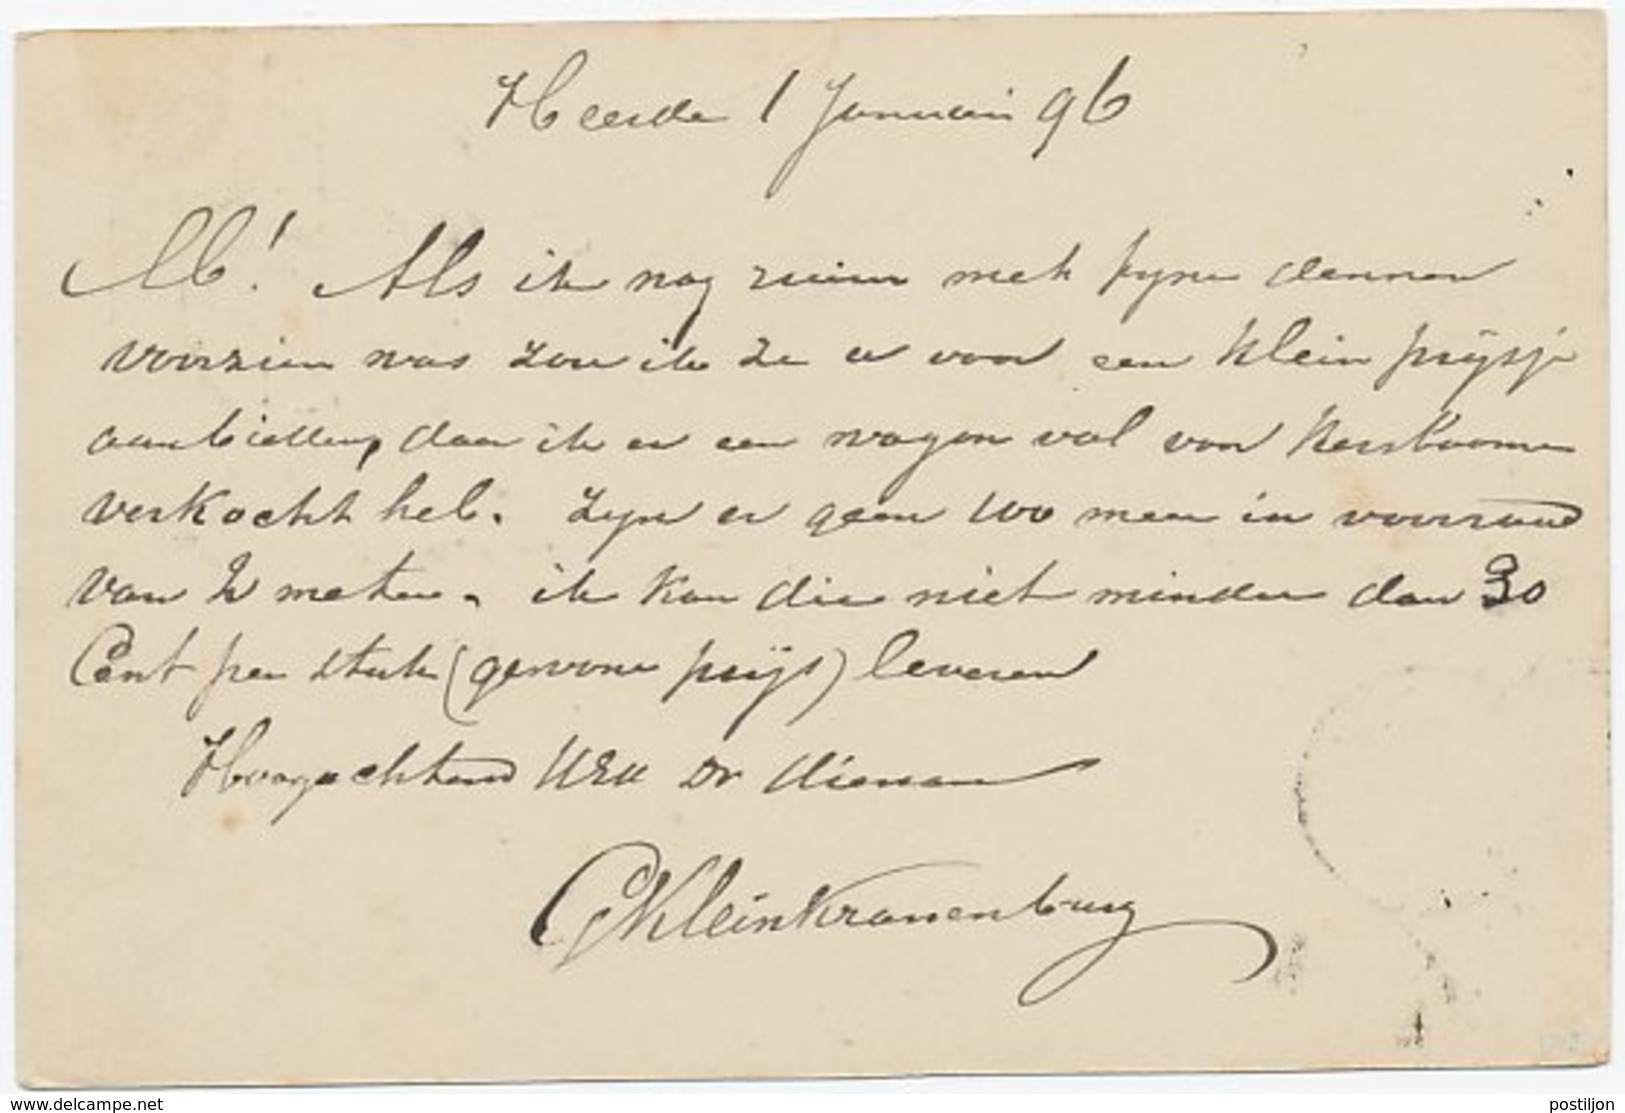 Heerde 1 Januari 96
M! Als ik nog ruim met fijne dennen
voorzien was zou ik ze u voor een klein prijsje
aanbieden, daar ik er een wagon vol voor Kersboomen
verkocht heb. Zijn er geen 100 meer in voorraad
van 2 meter. ik kan die niet minder dan 30
Cent per stuk (gewone prijs) leveren
Hoogachtend UEd Dv dienaar
G Klein Kranenburg
www.delcampe.net
postiljon